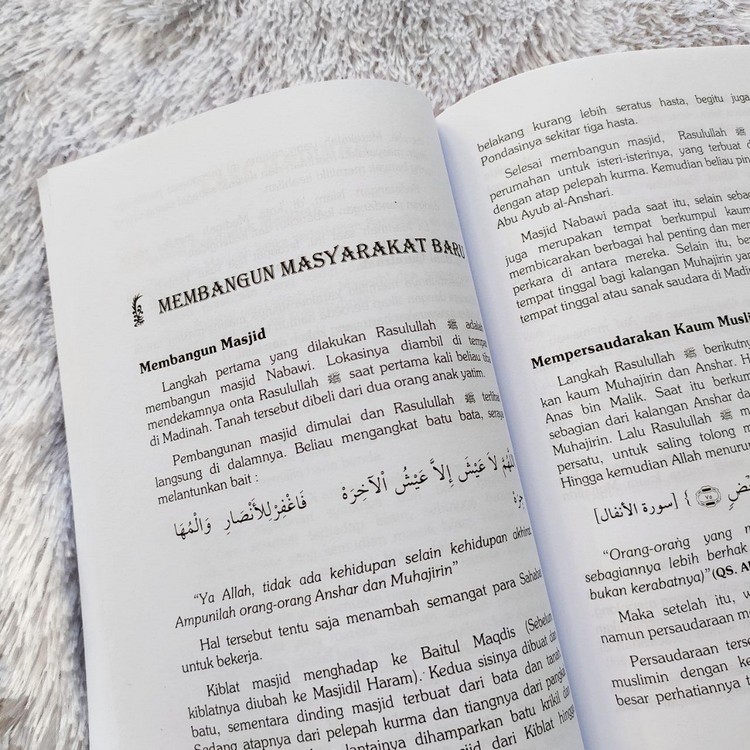 MEMBANGUN MASYARAKAT BARU
Membangun Masjid
Langkah pertama yang dilakukan Rasulullah ﷺ adalah
membangun masjid Nabawi. Lokasinya diambil di tempat
mendekamnya onta Rasulullah ﷺ saat pertama kali beliau tiba
di Madinah. Tanah tersebut dibeli dari dua orang anak yatim.
Pembangunan masjid dimulai dan Rasulullah ﷺ terlibat
langsung di dalamnya. Beliau mengangkat batu bata, seraya
melantunkan bait :
اللَّهُمَّ لاَ عَيْشَ إِلاَّ عَيْشُ اْلآخِرَةْ فَاغْفِرْ لِلأَنْصَارِ وَالْمُهَا
جِرَةْ
“Ya Allah, tidak ada kehidupan selain kehidupan akhirat.
Ampunilah orang-orang Anshar dan Muhajirin”
Hal tersebut tentu saja menambah semangat para Sahabat
untuk bekerja.
Kiblat masjid menghadap ke Baitul Maqdis (Sebelum
kiblatnya diubah ke Masjidil Haram). Kedua sisinya dibuat dari
batu, sementara dinding masjid terbuat dari bata dan tanah.
Sedang atapnya dari pelepah kurma dan tiangnya dari pangkal
lantainya dihamparkan batu krikil dan
dari Kiblat hingga
belakang kurang lebih seratus hasta, begitu juga
Pondasinya sekitar tiga hasta.
Selesai membangun masjid, Rasulullah ﷺ
perumahan untuk isteri-isterinya, yang terbuat d
dengan atap pelepah kurma. Kemudian beliau pin
Abu Ayub al-Anshari.
Masjid Nabawi pada saat itu, selain sebag
juga merupakan tempat berkumpul kaum
membicarakan berbagai hal penting dan me
perkara di antara mereka. Selain itu, be
tempat tinggal bagi kalangan Muhajirin yan
tempat tinggal atau sanak saudara di Madin
Mempersaudarakan Kaum Musli
Langkah Rasulullah ﷺ berikutny
kan kaum Muhajirin dan Anshar. H
Anas bin Malik. Saat itu berkum
sebagian dari kalangan Anshar da
Muhajirin. Lalu Rasulullah ﷺ m
persatu, untuk saling tolong m
Hingga kemudian Allah menurun
ضٍ ٧٥ } [سورة الأنفال]
“Orang-orang yang m
sebagiannya lebih berhak
bukan kerabatnya)”(QS. Al
Maka setelah itu, w
namun persaudaraan m
Persaudaraan terse
muslimin dengan ke
besar perhatiannya t